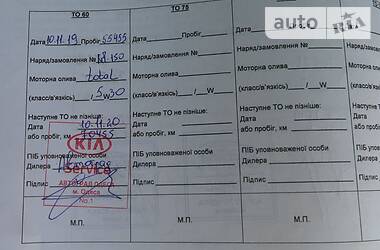 ТО 60
Дата 10.11.19 Пробіг 55455
Наряд/замовлення №
Моторна олива total
(класс/в'язкість) / 5W30
Наступне ТО не пізніше:
Дата 10.11.20
або пробіг, км 70455
ПІБ уповноваженої особи
Дилера
Підпис
М.П.
KIA
Service
АВТОГРАД ОДЕСА
м. Одеса
No.1
ТО 75
Дата Пробіг
Наряд/замовлення №
Моторна олива
(класс/в'язкість) / W
Наступне ТО не пізніше:
Дата
або пробіг, км
ПІБ уповноваженої особи
Дилера
Підпис
М.П.
Дата Пробіг
Наряд/замовлення
Моторна олива
(класс/в'язкість)
Наступне ТО не пізніше:
Дата
або пробіг, км
ПІБ уповноваженої особи
Дилера
Підпис
М.П.
auto
RIA